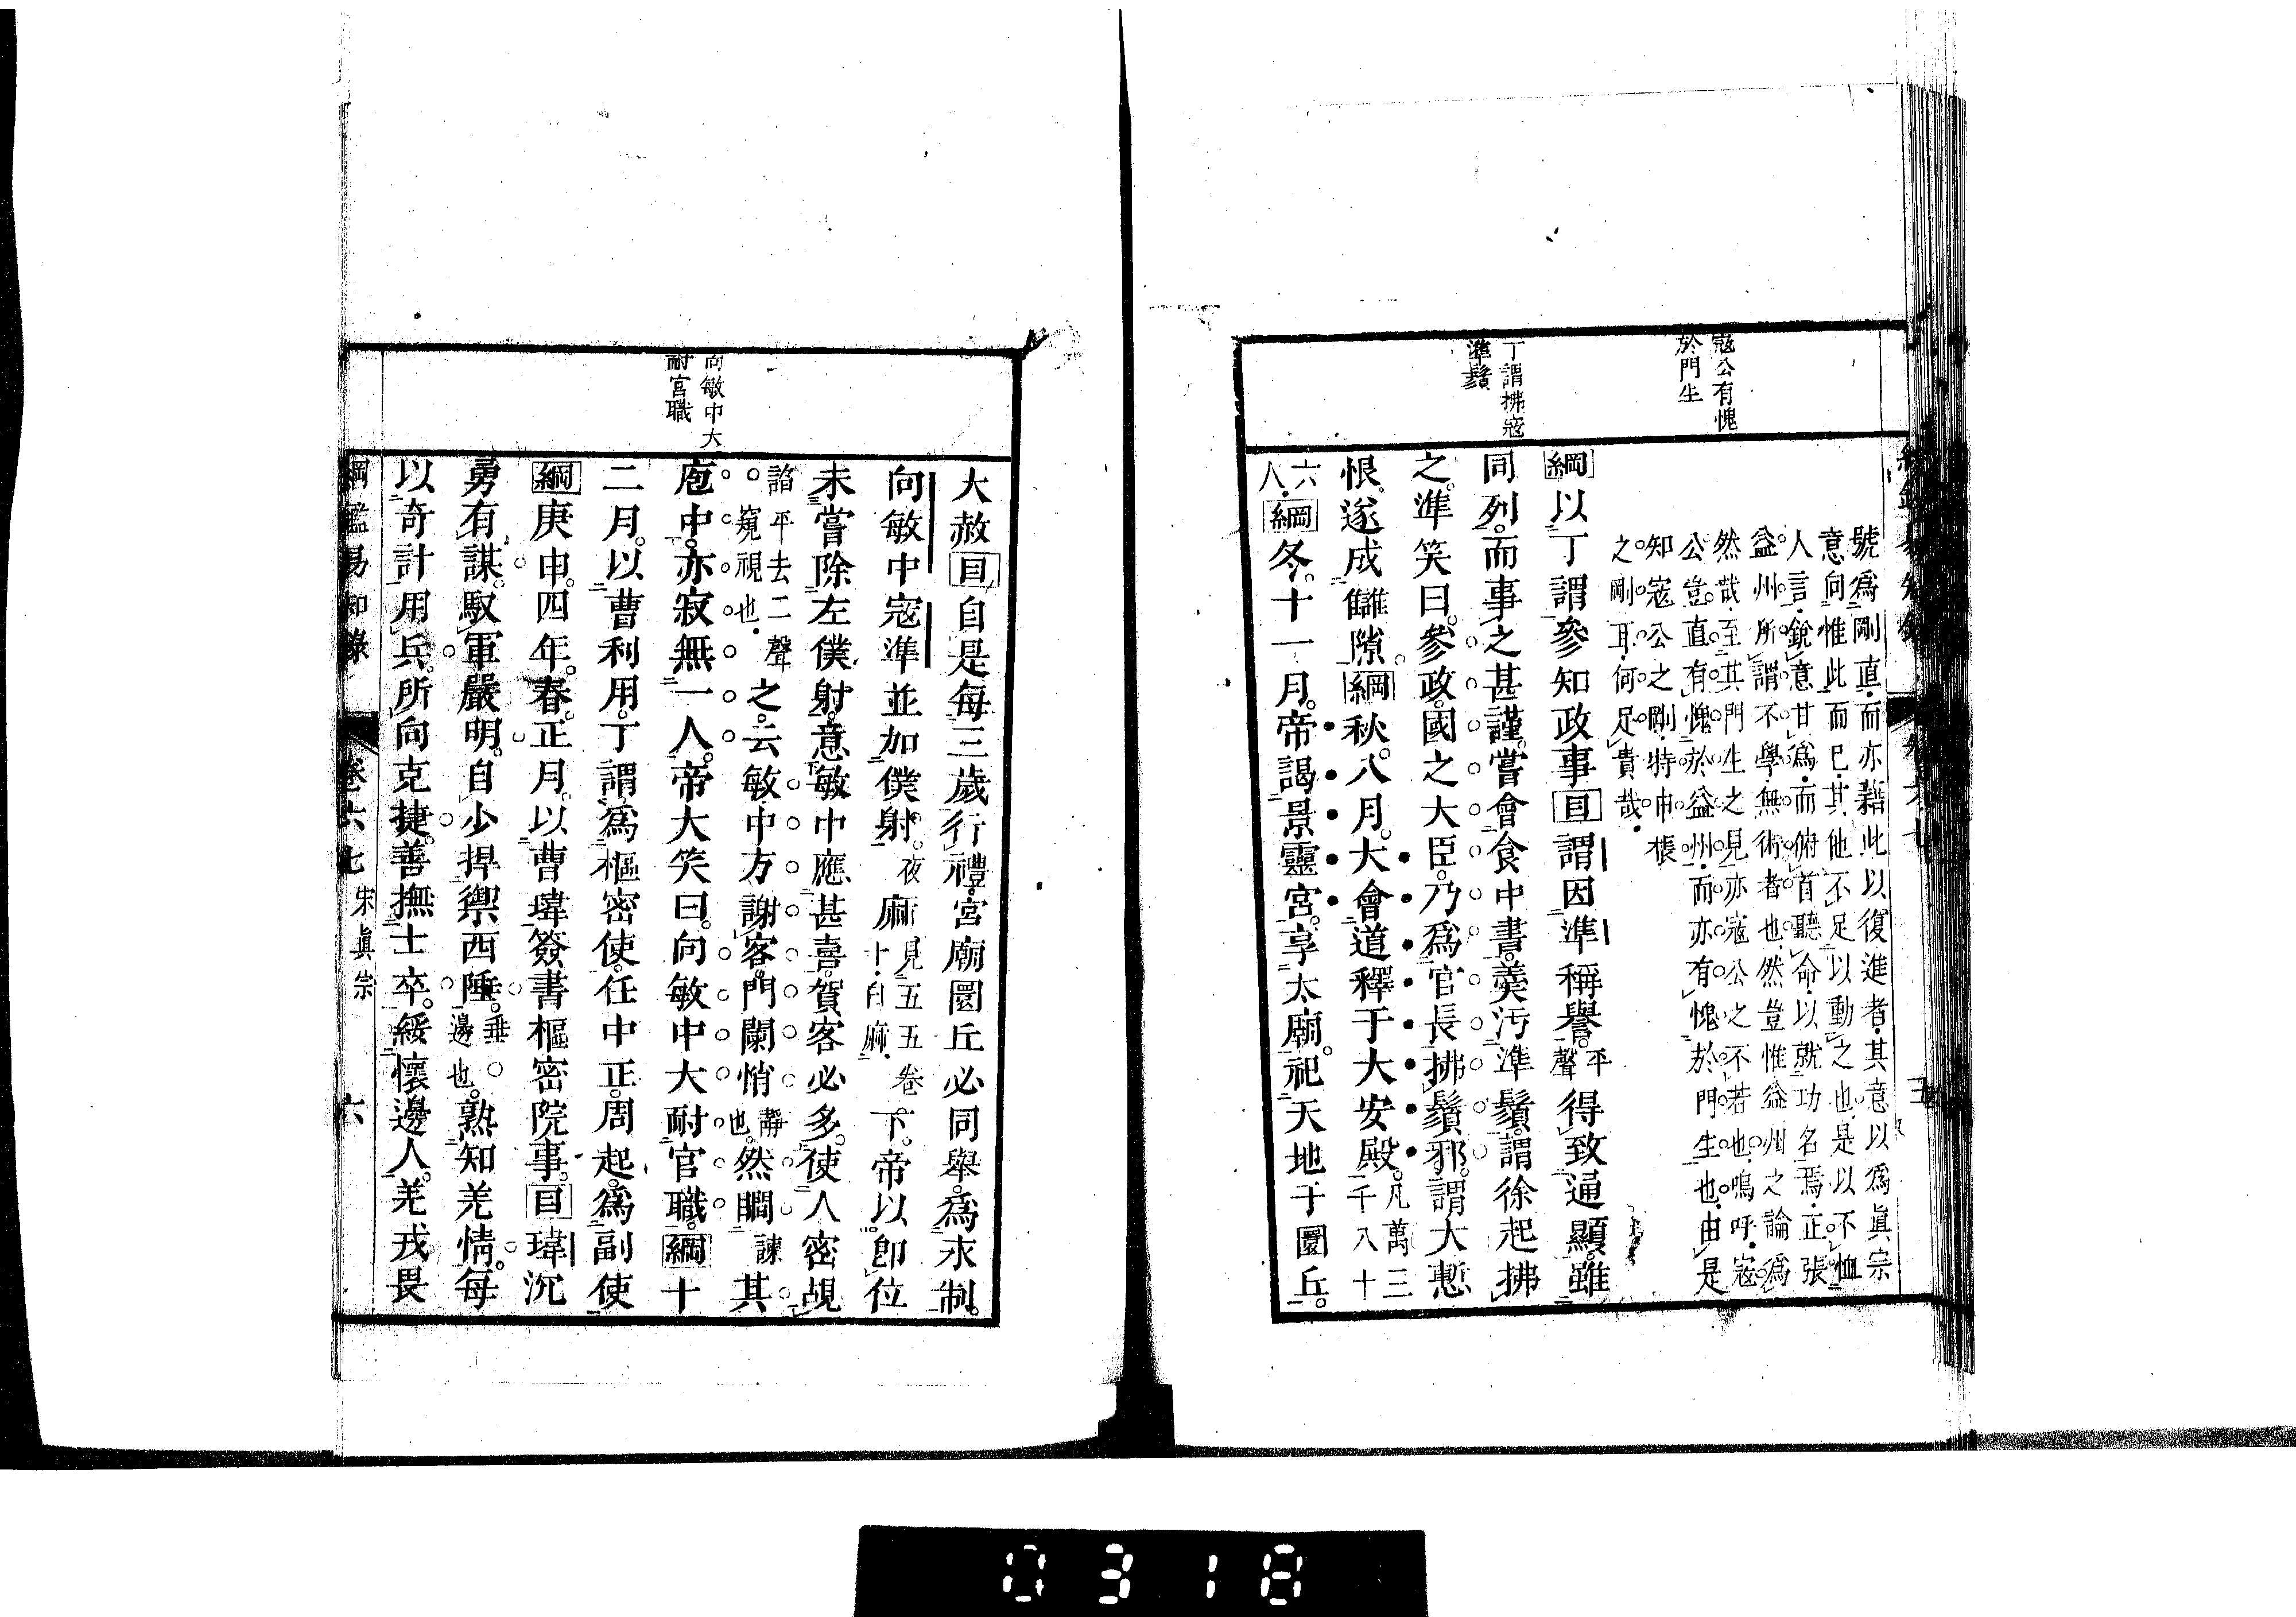 寇公有愧
於門生
丁謂拂寇
準鬚
號爲剛直而亦藉此以復進者其意以爲眞宗
意向惟此而已其他不足以動之也是以不恤
人言銳意甘爲而俯首聽命以就功名焉正張
益州所謂不學無術者也然豈惟益州之論爲
然哉至其門生之見亦寇公之不若也嗚呼寇
公豈直有愧於益州而亦有愧於門生也由是
知寇公之剛特申棖
之剛耳何足貴哉
綱以丁謂參知政事目謂因準稱譽平聲得致通顯雖
同列而事之甚謹嘗會食中書羹汚準鬚謂徐起拂
之準笑曰參政國之大臣乃爲官長拂鬚邪謂大慙
恨遂成讎隙綱秋八月大會道釋于大安殿凡萬三千八十
六人綱冬十一月帝謁景靈宮享太廟祀天地于圜丘
向敏中大
耐官職
大赦目自是每三歲行禮宮廟圜丘必同舉爲永制
向敏中寇準並加僕射夜麻見五五卷十白麻下帝以卽位
未嘗除左僕射意敏中應甚喜賀客必多使人密覘
諂平去二聲窺視也之云敏中方謝客門闌悄靜也然瞷諫其
庖中亦寂無一人帝大笑曰向敏中大耐官職綱十
二月以曹利用丁謂爲樞密使任中正周起爲副使
綱庚申四年春正月以曹瑋簽書樞密院事目瑋沉
勇有謀馭軍嚴明自少捍禦西陲垂邊也熟知羌情每
以奇計用兵所向克捷善撫士卒綏懷邊人羌戎畏
綱鑑易知錄 卷六七 宋眞宗 六
0318